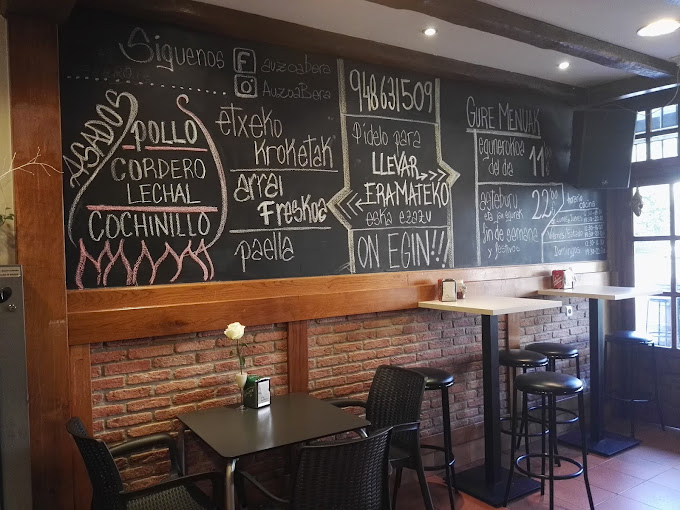 Siguenos
auzoabera
AuzoaBera
ASADOS
POLLO
CORDERO
LECHAL
COCHINILLO
etxeko
kroketak
arrai
Freskoa
paella
948631509
Pídelo para
LLEVAR
ERAMATEKO
eska ezazu
ON EGIN!!!
GURE MENUAK
egunerokoa
del día
11
asteburu
eta jai egunak
22
fin de semana
y festivos
Domingos